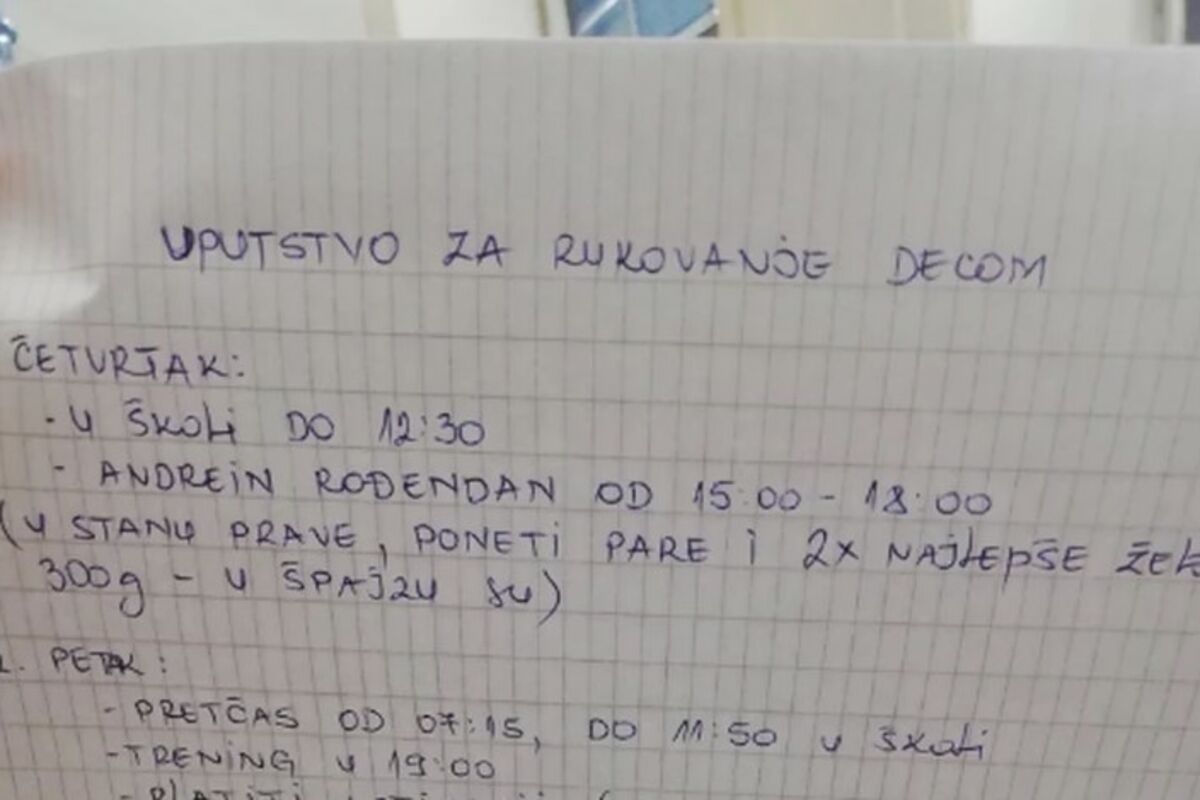 UPUTSTVO ZA RUKOVANJE DECOM
ČETVRTAK:
- U ŠKOLI DO 12:30
- ANDREIN ROĐENDAN OD 15:00 - 18:00
(U STANU PRAVE, PONETI PARE I 2x NAJLEPŠE
300g - U ŠPAJZU SU)
PETAK:
- PRETČAS OD 07:15, DO 11:50 U ŠKOLI
- TRENING U 19:00
- PLATITI